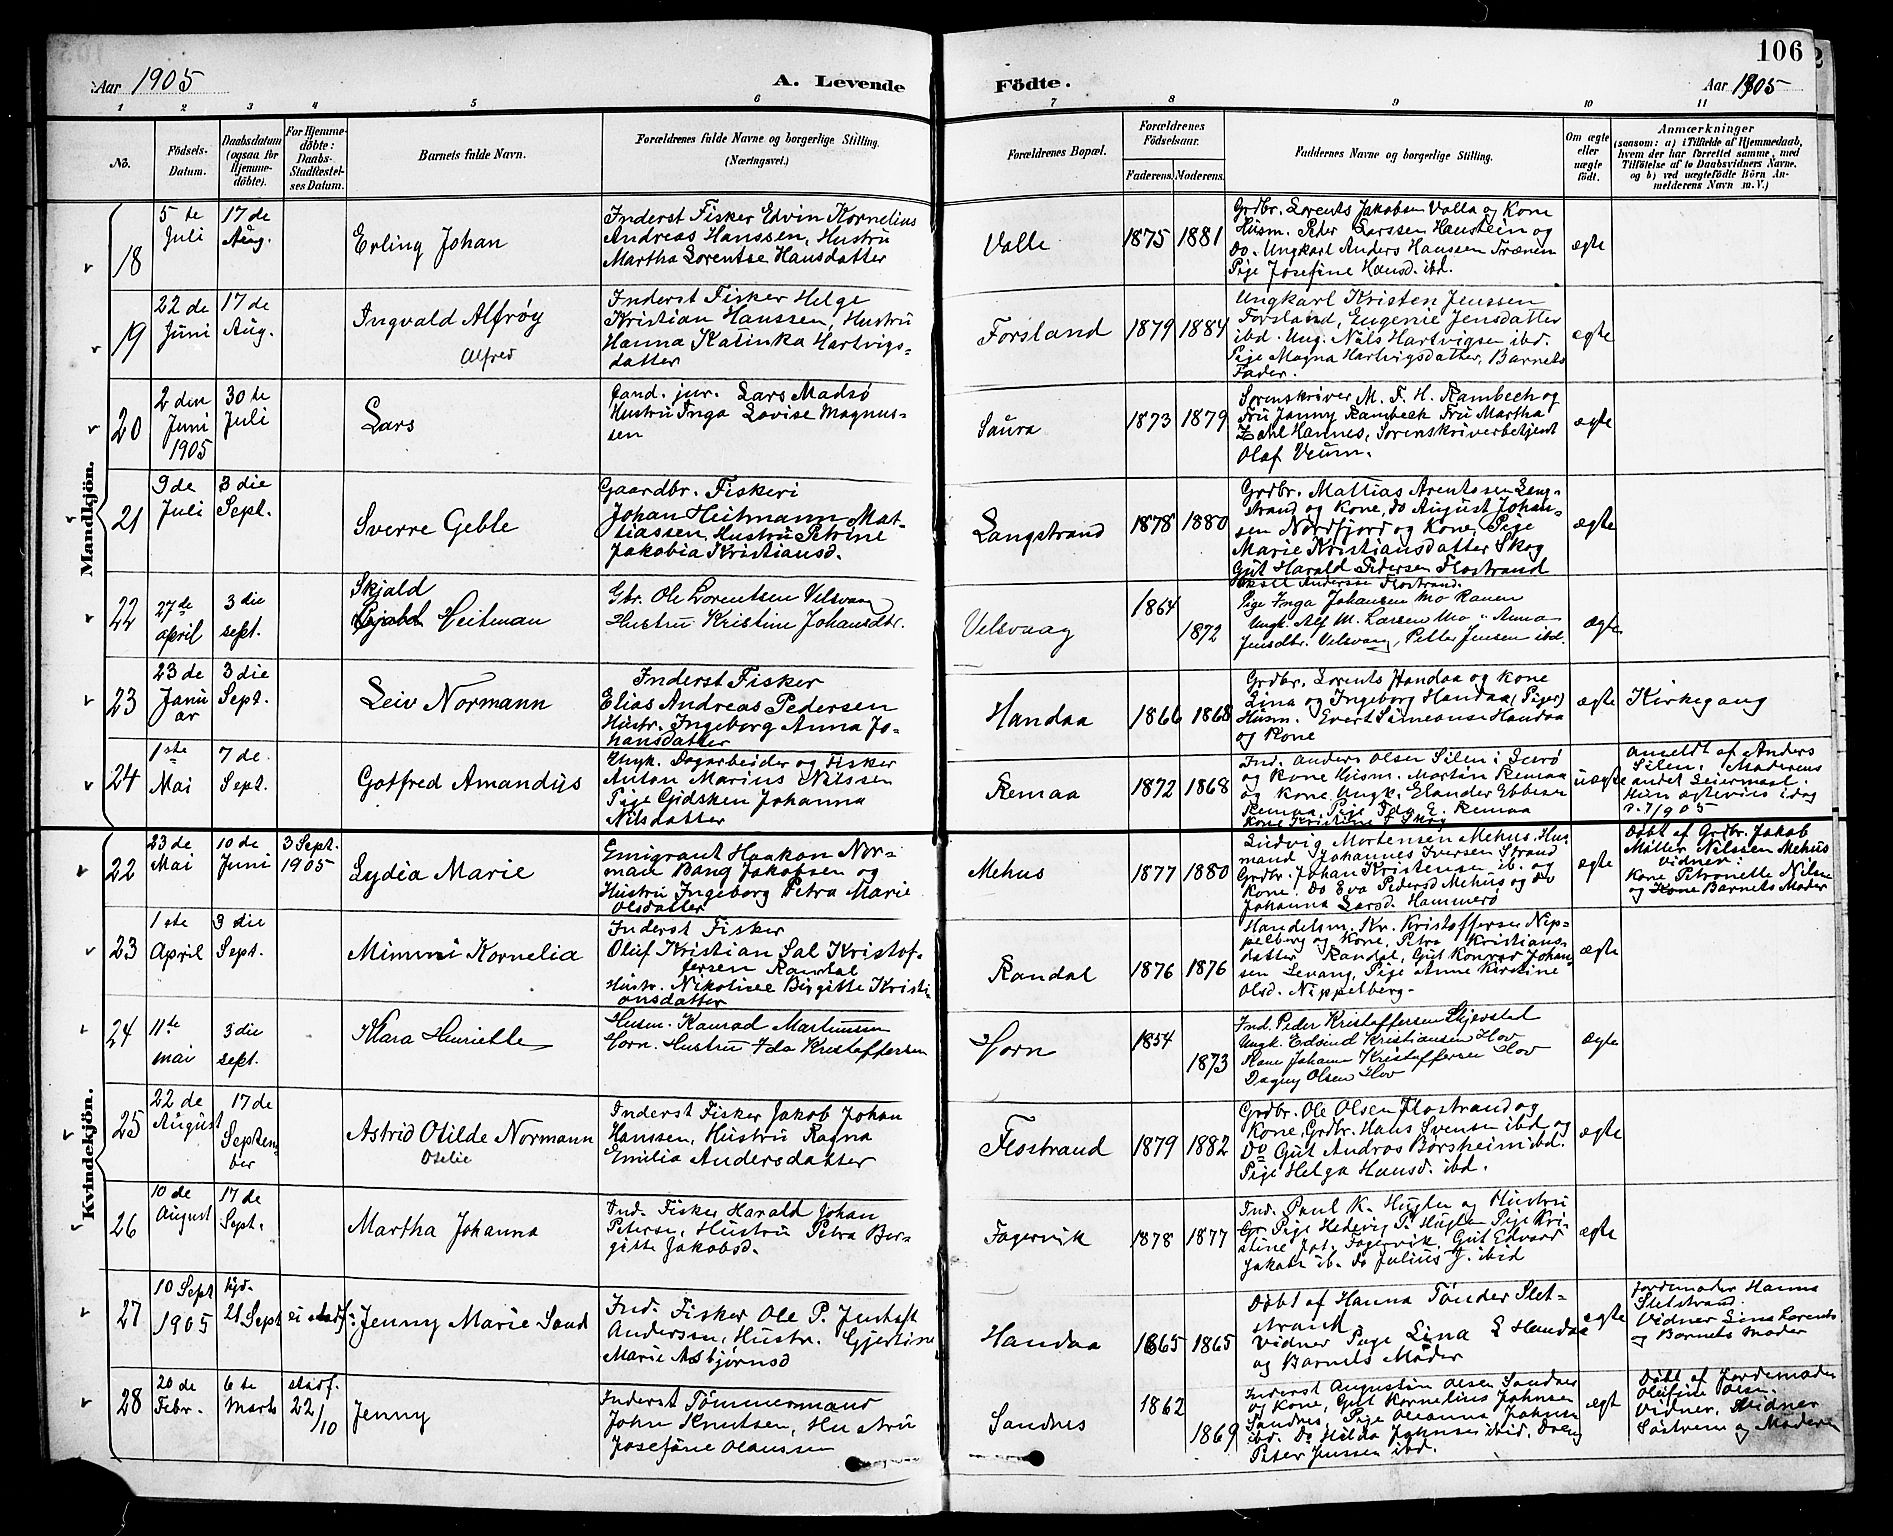 106
Aar 1905 A. Levende Födte. Aar 1905
1 2 3 4 5 6 7 8 9 10 11
No.
Födsels-
Datum.
Daabsdatum
(ogsaa for
Hjemme-
döbte).
For Hjemme-
döbte:
Daabs-
Stadfæstel-
ses Datum.
Barnets fulde Navn.
Forældrenes fulde Navne og borgerlige Stilling.
(Næringsvei.)
Forældrenes Bopæl.
Forældrenes
Födselsaar.
Faderens. Moderens.
Faddernes Navne og borgerlige Stilling.
Om ægte
eller
uægte
födt.
Anmærkninger
(saasom: a) i Tilfælde af Hjemmedaab,
hvem der har forrettet samme, med
Tilföielse af to Daabsvidners Navne,
og b) ved uægtefödte Börn An-
melderens Navn m. V.)
Mandkjön.
18
5 te
Juli
17 de
Aug.
Erling Johan
Inderst Fisker Edvin Kornelius
Andreas Hanssen, Hustru
Martha Lorentse Hansdatter
Valle
1875 1881
Grdbr. Lorents Jakobsen Valla og Kone
Husm. Peder Larssen Haustein og
Do. Ungkarl Anders Hanssen Trænen
Pige Josefine Hansd. ibd.
ægte
19
22 de
Juni
17 de
Aug.
Ingvald Alfrøy
Alfred
Inderst Fisker Helge
Kristian Hanssen, Hustru
Hanna Katinka Hartvigs-
datter
Forsland
1879 1884
Ungkarl Kristen Jenssen
Forsland, Eugenie Jensdatter
ibd. Ung. Nils Hartvigsen ibd.
Pige Magna Hartvigsdatter, Barnets
Fader.
ægte
20
2 den
Juni
1905
30 te
Juli
Lars
Cand. jur. Lars Madsø
Hustru Inga Lovise Magnus-
sen
Saura
1873 1879
Sorenskriver M. F. H. Rambech og
Fru Janny Rambech Fru Martha
Zahl Hannes, Sorenskriverbetjent
Olaf Veum.
ægte
21
9 de
Juli
3 die
Sept.
Sverre Geble
Gaardbr. Fiskeri
Johan Heitmann Mat-
tiassen, Hustru Petrine
Jakobia Kristiansd.
Langstrand
1878 1880
Grdbr. Mattias Arentssen Lang-
strand og Kone, Do August Johan-
sen Nordfjord og Kone, Pige
Marie Kristiansdatter Skog
Gut Harald Pedersen Flostrand
Anderssen Flostrand.
ægte
22
27de
april
3 die
sept.
Skjald
Heitman
Gbr. Ole Lorentsen Velsvaag
Hustru Kristine Johansdtr.
Velsvaag
1864
1872
Pige Inga Johansen Mo Ranen
Ungk. Alf M. Larsen Mo Anna
Jensdtr. Velsvaag, Petter Jensen ibd.
ægte
23
23 de
Janu
ar
3 die
Sept.
Leiv Normann
Inderst Fisker
Elias Andreas Pedersen
Hustr. Ingeborg Anna Jo-
hansdatter
Handaa
1866 1868
Grdbr. Lorents Handaa og Kone
Lina og Ingeborg Handaa (Piger)
Husm. Evert Simeonse Handaa
og Kone
ægte
Kirkegang
24
1ste
Mai
7 de.
Sept.
Gotfred Amandus
Ungk. Dagarbeider og Fisker
Anton Marius Nilssen
Pige Gidsken Johanna
Nilsdatter
Remaa
1872 1868
Ind. Anders Olsen Silen i Lurø
og Kone Husm. Martin Remaa
og Kone Ungk. Elander Ebbesen
Remaa, Pige Ida E. Remaa
uægte
anmeldt af Anders
Silen. Moderens
andet Leiermaal
Hun ægtevies idag
d. 7/905
Kvindekjön.
22
23 de
Mai
10 de
Juni
3 Sept.
1905
Lydia Marie
Emigrant Haakon Nor-
man Bang Jakobsen og
Hustru Ingeborg Petra Marie
Olsdatter
Mehus
1877 1880
Ludvig Mortensen Mehus, Hus
mand Johannes Iversen Strand
Grdbr. Johan Kristensen ib. og
Kone, Do Eva Pedersd Mehus og Do
Johanna Larsd. Hammerö
ægte
Döbt af Grdbr. Jakob
Møller Nilssen Mehus
Vidner:
Kone Petronelle Nilsen
og Kone Barnets Moder
23
1 ste
April
3 die
Sept.
Mimmi Kornelia
Inderst Fisker
Oluf Kristian Sal Kristof-
fersen Randal
Hustr. Nikoline Birgitte Kristi-
ansdatter
Randal
1876 1876
Handelsm. Kr. Kristoffersen Nip-
pelberg og Kone, Petra Kristians-
datter Randal, Gut Konrad Johan-
sen Levang, Pige Anne Kirstine
Olsd. Nippelberg.
ægte
24
11te
mai
3 die
sept.
Klara Henriette
Husm. Konrad Martinussen
Horn. Hustru Ida Kristoffersen
Horn
1854
1873
Ind. Peder Kristoffersen
Ungk. Edvind Kristiansen Hov
Kone Johann Kristoffersen Hov
Dagny Olsen Hov
ægte
25
22 de
August
17 de
Septem-
ber
Astrid Otilde Normann
Otelie
Inderst Fisker Jakob Johan
Hanssen, Hustru Ragna
Emilia Andersdatter
Flostrand
1879 1882
Grdbr. Ole Olsen Flostrand og
Kone, Grdbr. Hans Svensen ibd og
Do Gut Andros Børsheim ibd.
Pige Helga Hansd. ibd.
ægte
26
10 de
August
17 de
Sept.
Martha Johanna
Ind. Fisker Harald Johan
Petersen, Hustru Petra Ber-
gitte Jakobsd.
Fagervik
1878 1877
Ind. Paul K. Huglen og Hustru
Gr. Pige Hedevig P. Huglen Pige Kri-
stine Jak. Fagervik, Gut Edvard
Jakobs ib. do Julius J. ibid
ægte
27
10 Sept
1905
hjd.
21 Sept
ei stadf:
Jenny Marie Sand
Ind. Fisker Ole P. Jentoft
Andersen, Hustr. Gjertine
Marie Asbjørnsd
Handaa
1865 1865
Döbt af Hanna Tønder Slet-
strand
Vidner Pige Lina L Handaa
og Barnets Moder
ægte
Jordemoder Hanna
Sletstrand.
Vidner Lina Lorents
og Barnets Moder
28
20 de
Febr.
6 te
Marts
stadf.
22/10
Jenny
Inderst Tømmermand
John Knutsen, Hustru
Josefine Olaussen
Sandnes
1862
1869
Inderst Augustin Olsen Sandnes
og Kone, Gut Kornelius Johnsen
Sandnes, Pige Oleanna Johnsen
ibd. Do Hilda Johnsen ibid, Dreng
Peter Jenssen ibd.
ægt
Döbt af Jordemoder
Olufine Olsen.
Vidner, Vidner
Søstrene og Moderen